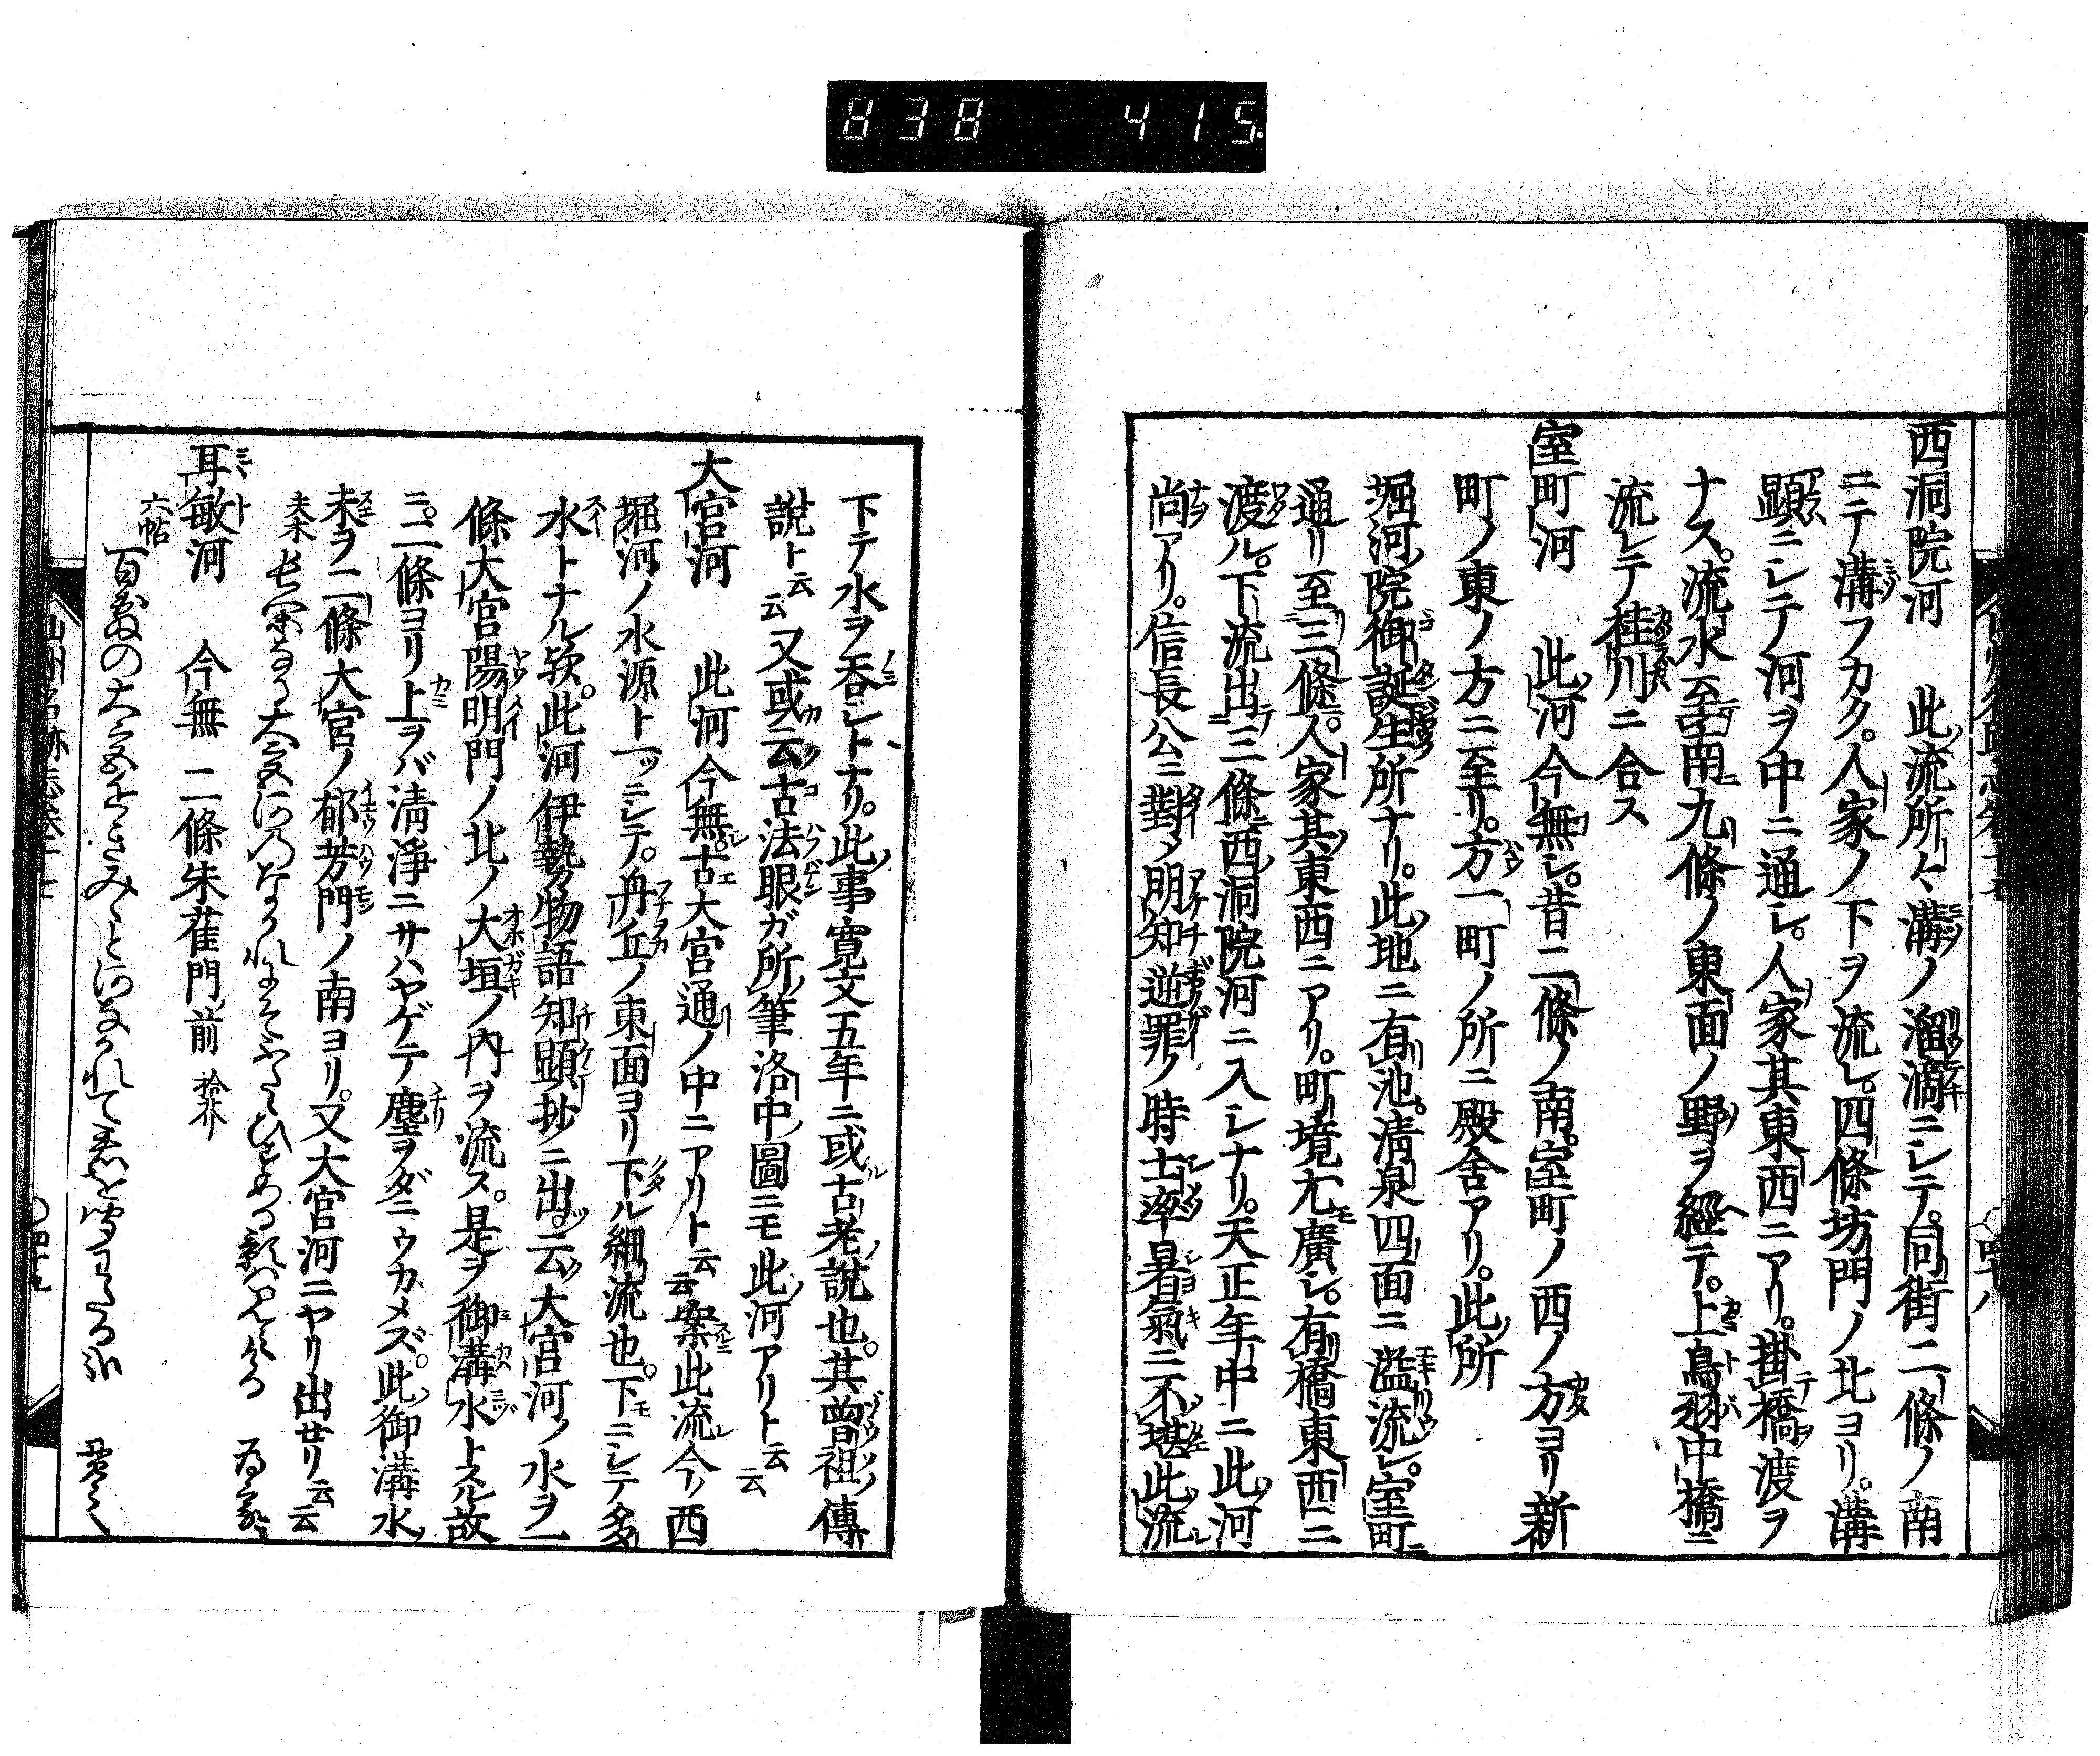 838 415.
西洞院河 此流所々溝ノ溜滴ニシテ。同街二條ノ南
ニテ溝フカク。人家ノ下ヲ流レ。四條坊門ノ北ヨリ。溝
顕ニシテ河ヲ中ニ通シ。人家其東西ニアリ。掛橋渡ヲ
ナス。流水至南九條ノ東面ノ野ヲ經テ。上鳥羽中橋ニ
流レテ桂川ニ合ス
室町河 此河今無シ。昔二條ノ南。室町ノ西ノ方ヨリ新
町ノ東ノ方ニ至リ。方一町ノ所ニ殿舍アリ。此所
堀河院御誕生所ナリ。此地ニ有池。清泉四面ニ溢流レ。室町
通リ至三條。人家其東西ニアリ。町境尤廣シ。有橋東西ニ
渡ル。下流出三條西洞院河ニ入シナリ。天正年中ニ此河
尚アリ。信長公ニ對メ明知逆罪ノ時士卒暑氣ニ不堪此流
下テ水ヲ呑シトナリ。此事寛文五年ニ或古老説也。其曾祖傳
説ト云云又或云古法眼ガ所筆洛中圖ニモ此河アリト云云
大宮河 此河今無。古大宮通ノ中ニアリト云云案此流今西
堀河ノ水源ト一ツニシテ。舟丘ノ東面ヨリ下ル細流也。下ニシテ多
水トナル歟。此河伊勢物語知顕抄ニ出。云大宮河ノ水ヲ一
條大宮陽明門ノ北ノ大垣ノ内ヲ流ス。是ヲ御溝水トスル故
ニ。二條ヨリ上ヲバ清浄ニサハヤゲテ塵ヲダニウカメズ。此御溝水
末ヲ二條大宮ノ郁芳門ノ南ヨリ。又大宮河ニヤリ出セリ云云
夫木 大宮河のながれにそ 為家
耳敏河 今無 二條朱雀門前 拾芥
六帖 百敷の大宮ちかきみゝと河ながれて君を